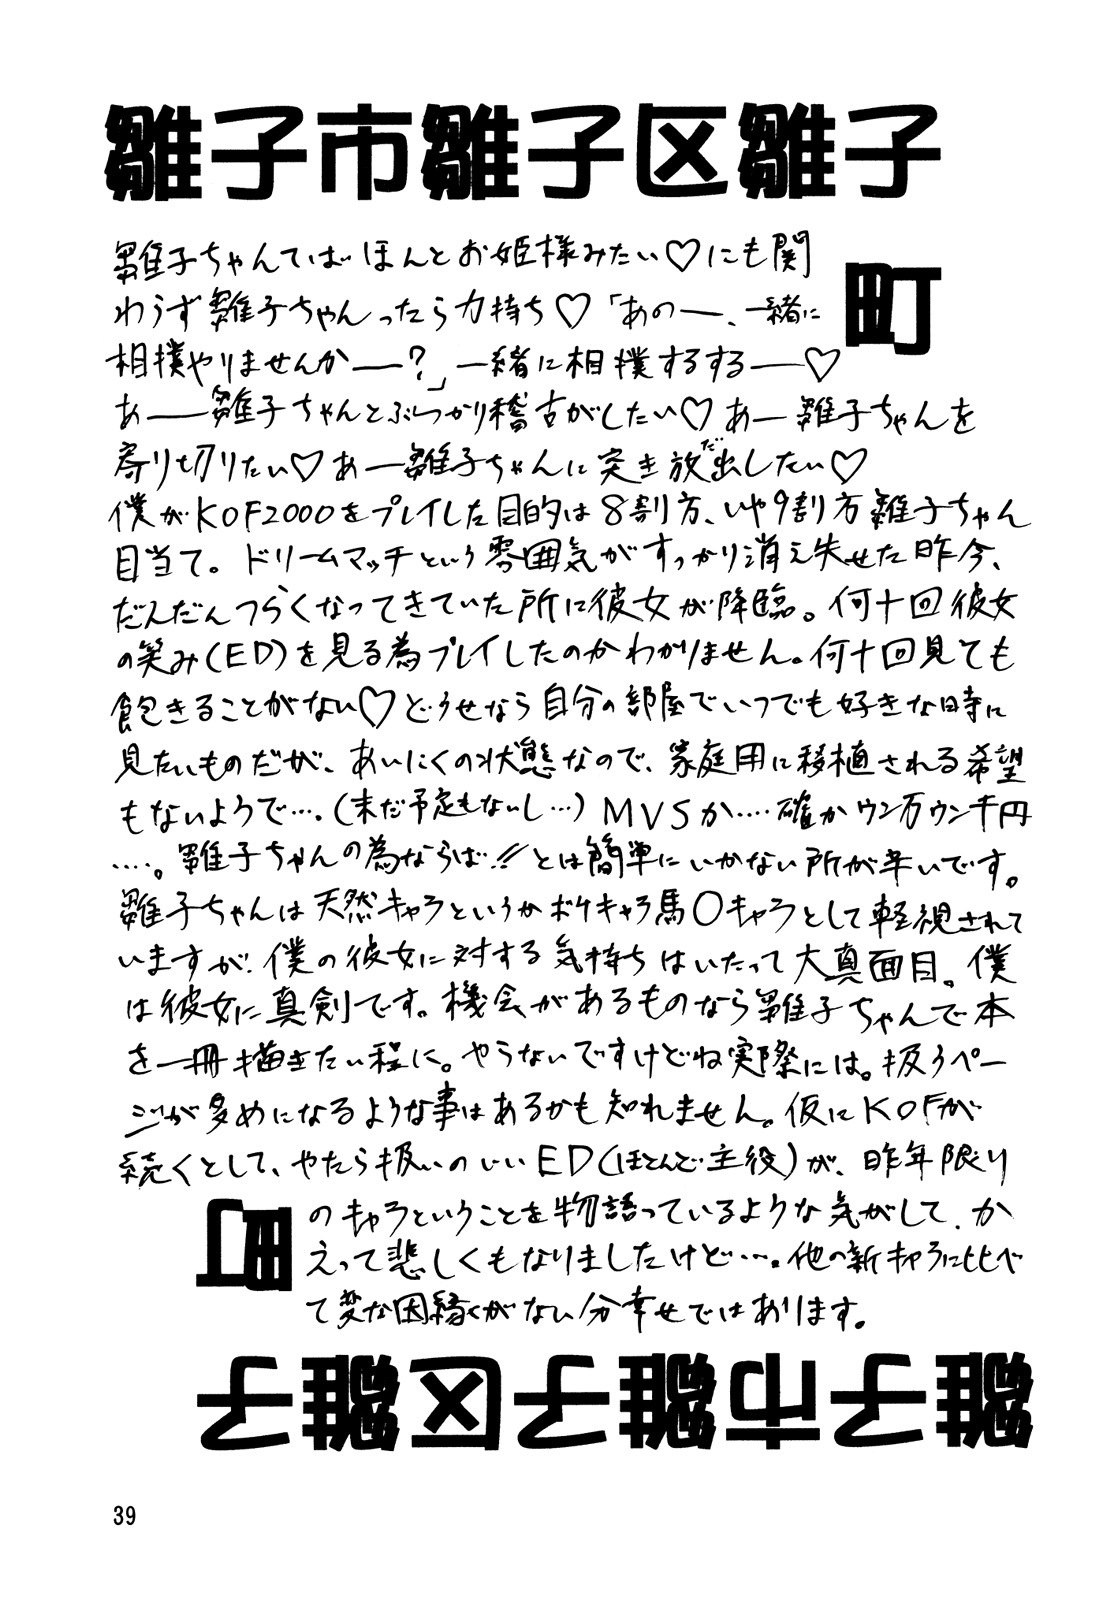 雛子市雛子区雛子
町
雛子ちゃんてばほんとお姫様みたい♡にも関
わらず雛子ちゃんったら力持ち♡「あのー、一緒に
相撲やりませんかー?」一緒に相撲するするー♡
あー雛子ちゃんとぶつかり稽古がしたい♡あー雛子ちゃんを
寄り切りたい♡あー雛子ちゃんに突き放出したい♡
僕がKOF2000をプレイした目的は8割方、いや9割方雛子ちゃん
目当て。ドリームマッチという雰囲気がすっかり消え失せた昨今、
だんだんつらくなってきていた所に彼女が降臨。何十回彼女
の笑み(ED)を見る為プレイしたのかわかりません。何十回見ても
飽きることがない♡どうせなら自分の部屋でいつでも好きな時に
見たいものだが、あいにくの状態なので、家庭用に移植される希望
もないようで…。(未だ予定もないし…)MVSか‥‥確かウン万ウン千円
‥‥。雛子ちゃんの為ならば!!とは簡単にいかない所が辛いです。
雛子ちゃんは天然キャラというかボケキャラ馬○キャラとして軽視されて
いますが、僕の彼女に対する気持ちはいたって大真面目。僕
は彼女に真剣です。機会があるものなら雛子ちゃんで本
を一冊描きたい程に。やらないですけどね実際には。扱うペー
ジが多めになるような事はあるかも知れません。仮にKOFが
続くとして、やたら扱いのいいED(ほとんど主役)が、昨年限り
のキャラということを物語っているような気がして、か
えって悲しくもなりましたけど…。他の新キャラに比べ
て変な因縁がない分幸せではあります。
町
雛子市雛子区雛子
39